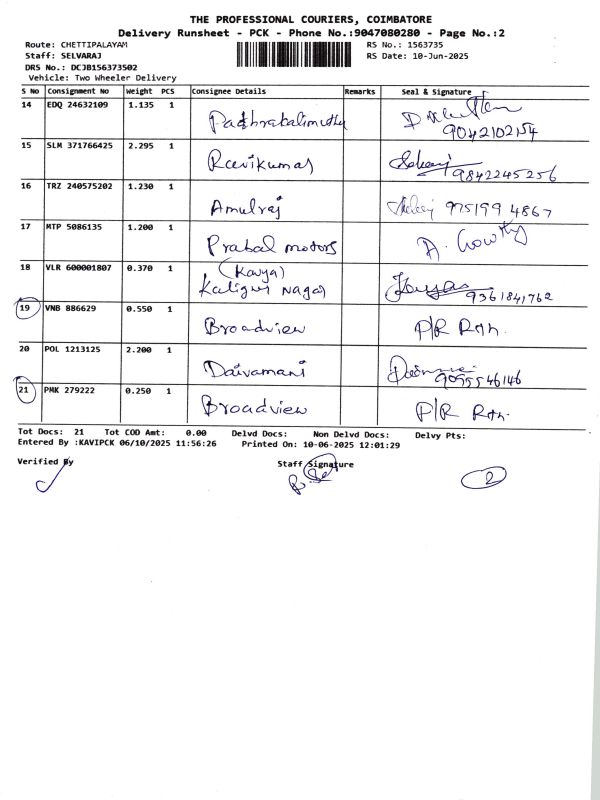 THE PROFESSIONAL COURIERS, COIMBATORE
Delivery Runsheet - PCK - Phone No.:9047080280 - Page No.:2
Route: CHETTIPALAYAM RS No.: 1563735
Staff: SELVARAJ RS Date: 10-Jun-2025
DRS No.: DCJB156373502
Vehicle: Two Wheeler Delivery
S No Consignment No Weight PCS Consignee Details Remarks Seal & Signature
14 EDQ 24632109 1.135 1 Padhrakalimuthu
9042102154
15 SLM 371766425 2.295 1 Ravikumar 9842245256
16 TRZ 240575202 1.230 1 Amulraj 975199 4867
17 MTP 5086135 1.200 1 Prabal motors A. Gowthy
18 VLR 600001807 0.370 1 (Kavya)
Kaligur Nagar 9361841762
19 VNB 886629 0.550 1 Broadview P/R Rtn.
20 POL 1213125 2.200 1 Daivamani 9095546146
21 PMK 279222 0.250 1 Broadview P/R Rtn.
Tot Docs: 21 Tot COD Amt: 0.00 Delvd Docs: Non Delvd Docs: Delvy Pts:
Entered By :KAVIPCK 06/10/2025 11:56:26 Printed On: 10-06-2025 12:01:29
Verified By Staff Signature
2